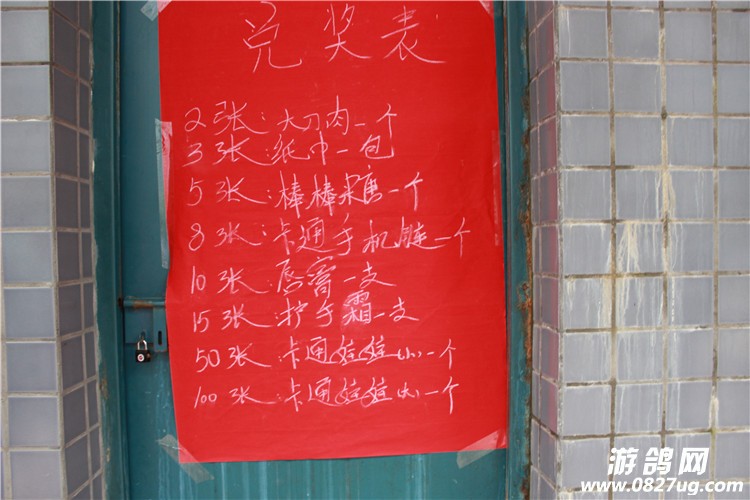 兑奖表
2张:大刀肉一个
3张:纸巾一包
5张:棒棒糖一个
8张:卡通手机链一个
10张:唇膏一支
15张:护手霜一支
50张:卡通娃娃(小)一个
100张:卡通娃娃(大)一个
游鸽网
www.0827ug.com